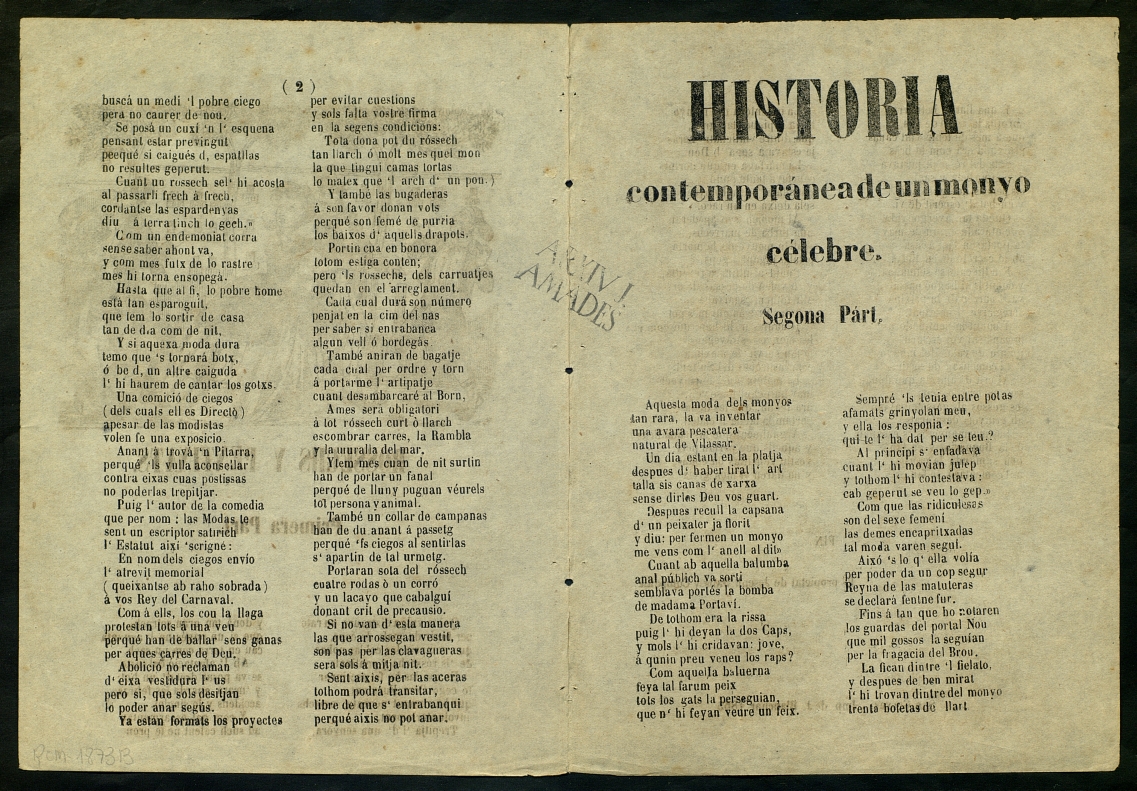 ( 2 )
buscá un medi 'l pobre ciego
pera no caurer de nou.
Se posá un cuxí 'n l' esquena
pensant estar previngut
peequé si caigués d, espatllas
no resultes geperut.
Cuant un rossech sel' hi acosta
al passarli frech á frech,
cordantse las espardenyas
diu á terra tinch lo gech.»
Com un endemoniat corra
sense saber ahont va,
y com mes fuix de lo rastre
mes hi torna ensopegá.
Hasta que al fi, lo pobre home
está tan esparoguit,
que tem lo sortir de casa
tan de dia com de nit,
Y si aquexa moda dura
temo que 's tornará botx,
ó be d, un altre caiguda
l' hi haurem de cantar los gotxs.
Una comició de ciegos
( dels cuals ell es Directò )
apesar de las modistas
volen fe una exposicio.
Anant á trová 'n Pitarra,
perqué 'ls vulla aconsellar
contra eixas cuas postissas
no poderlas trepitjar.
Puig l' autor de la comedia
que per nom : las Modas te
sent un escriptor satirich
l' Estatut aixi 'scrigné :
En nom dels ciegos envío
l' atrevit memorial
( queixantse ab raho sobrada )
á vos Rey del Carnaval.
Com á ells, los cou la llaga
protestan tots á una veu
perqué han de ballar sens ganas
per aques carres de Deu.
Abolició no reclaman
d' eixa vestidura l' us
pero si, que sols desitjan
lo poder anar segús.
Ya estan formats los proyectes
per evitar cuestions
y sols falta vostre firma
en la segens condicions:
Tota dona pot du róssech
tan llarch ó molt mes quel mon
la que tingui camas tortas
lo matex que 'l arch d' un pon.)
Y també las bugaderas
á son favor donan vots
perqué son femé de purria
los baixos d' aquells drapots.
Portin cua en bonora
totom estiga conten;
pero 'ls rossechs, dels carruatjes
quedan en el arreglament.
Cada cual durá son número
penjat en la cim del nas
per saber si entrabanca
algun vell ó bordegás.
També aniran de bagatje
cada cual per ordre y torn
á portarme l' artipatje
cuant desambarcaré al Born,
Ames será obligatori
á tot róssech curt ó llarch
escombrar carres, la Rambla
y la muralla del mar.
Y fem mes cuan de nit surtin
han de portar un fanal
perqué de lluny puguan véurels
tot persona y animal.
També un collar de campanas
han de du anant á passetg
perqué 'fs ciegos al sentirlas
s' apartin de tal urmetg.
Portaran sota del róssech
cuatre rodas ó un corró
y un lacayo que cabalguí
donant crit de precausio.
Si no van d' esta manera
las que arrossegan vestit,
son pas per las clavagueras
sera sols á mitja nit.
Sent aixis, per las aceras
tothom podrá transitar,
libre de que s' entrabanqui
perqué aixis no pot anar.
ARXIV J.
AMADES
Rom. 18.7313
HISTORIA
contemporánea de un monyo
célebre.
Segona Párt.
Aquesta moda dels monyos
tan rara, la va inventar
una avara pescatera
natural de Vilassar.
Un dia estant en la platja
despues d' haber tirat l' art
talla sis canas de xarxa
sense dirlos Deu vos guart.
Despues recull la capsana
d' un peixater ja florit
y diu: per fermen un monyo
me vens com l' anell al dit»
Cuant ab aquella balumba
anal públich va sorti
semblava portés la bomba
de madama Portaví.
De tothom era la rissa
puig l' hi deyan la dos Caps,
y mols l' hi cridavan: jove,
á qunin preu veneu los raps?
Com aquella baluerna
feya tal farum peix
tots los gats la perseguian,
que n' hi feyan veure un feix.
Sempré 'ls tenia entre potas
afamats grinyolan meu,
y ella los responia :
qui te l' ha dat per se teu.?
Al principi s' enfadava
cuant l' hi movian julep
y tothom l' hi contestava :
cab geperut se veu lo gep.»
Com que las ridiculesas
son del sexe femení
las demes encapritxadas
tal moda varen seguí.
Aixó 's lo q' ella volía
per poder da un cop segur
Reyna de las matuteras
se declará fentne fur.
Fins á tan que ho notaren
los guardas del portal Nou
que mil gossos la seguían
per la fragacia del Brou.
La fican dintre 'l fielato,
y despues de ben mirat
l' hi trovan dintre del monyo
trenta bofetas de llart